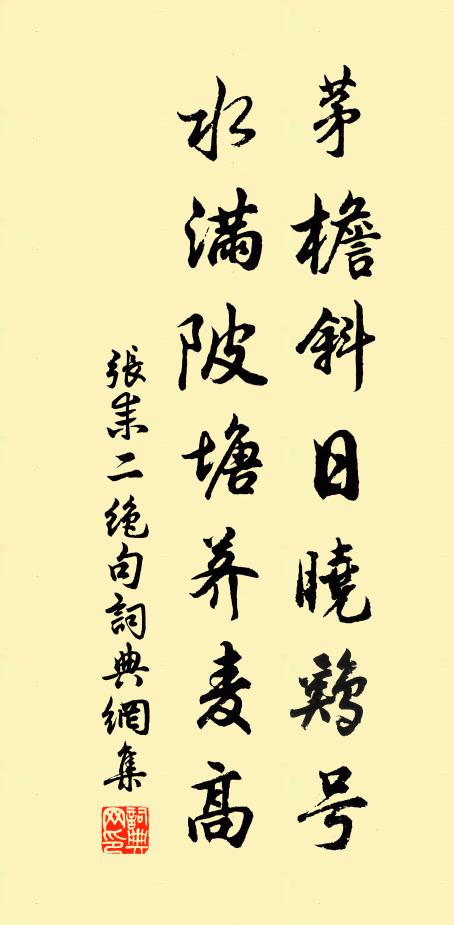 茅檐斜日曉鷄号
水滿陂塘荞麦高
張耒二绝句詞典網集
詞典网印